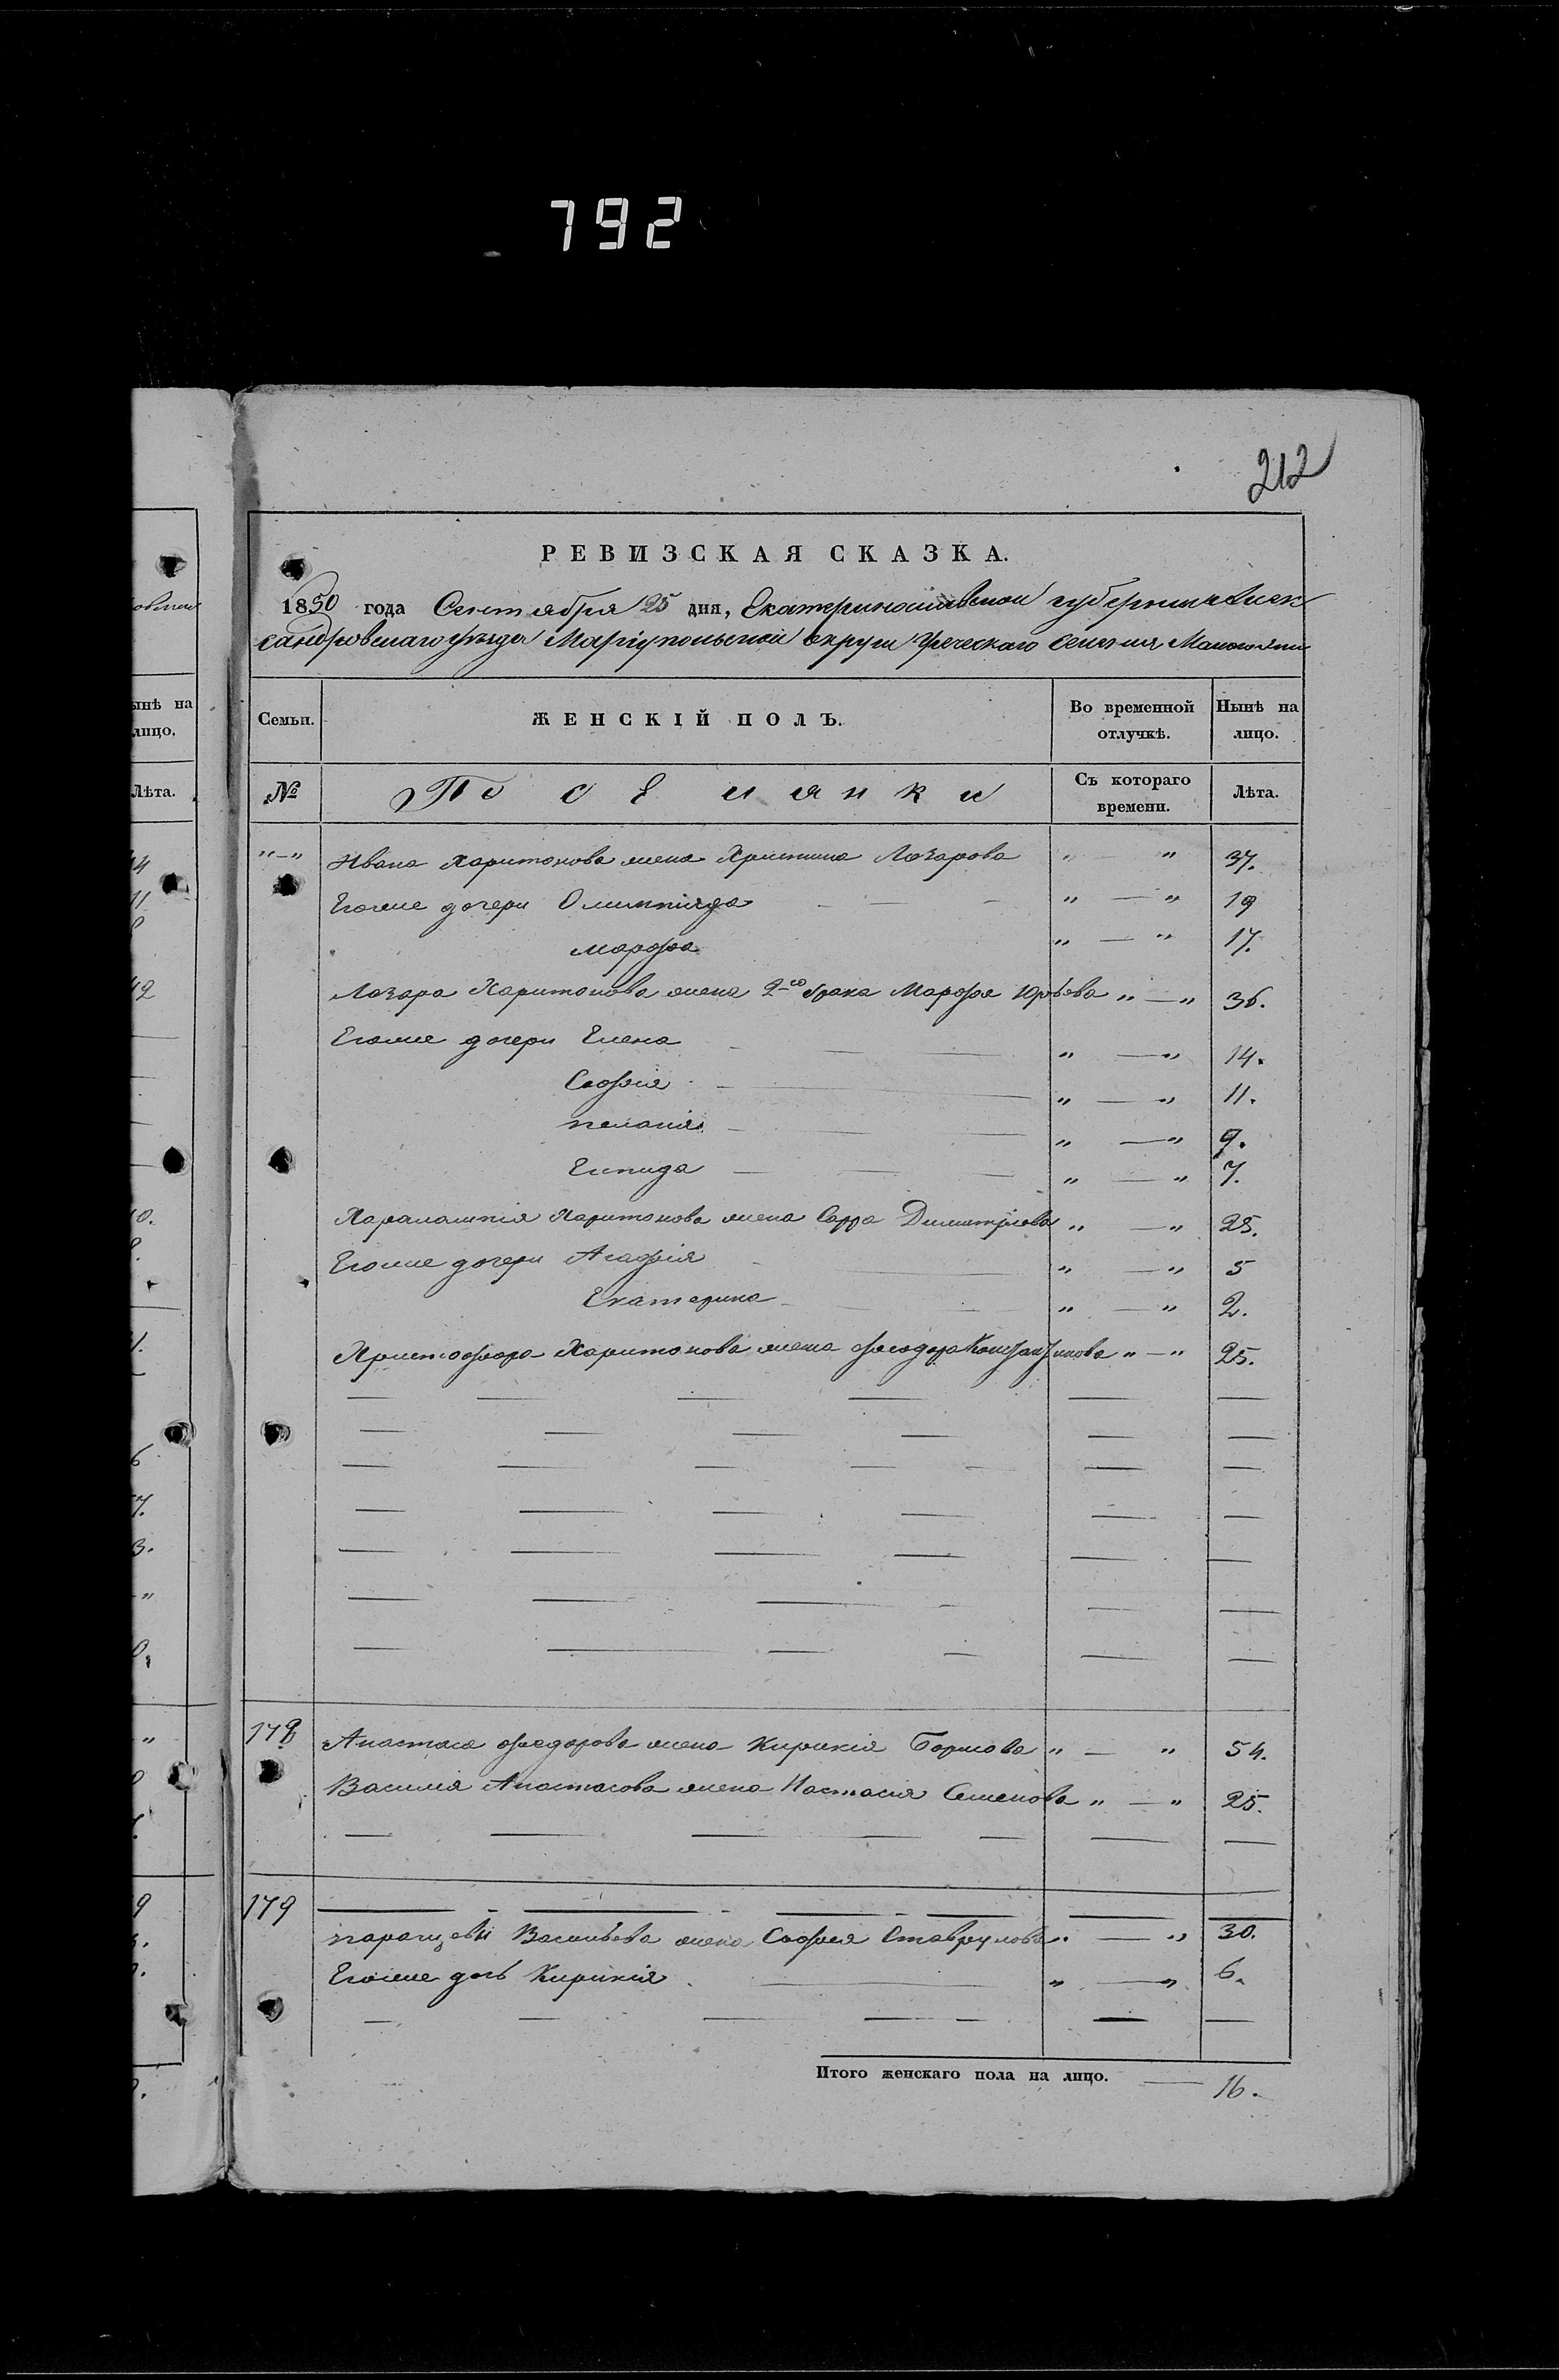 792
212
РЕВИЗСКАЯ СКАЗКА.
1850 года Сентября 25 дня, Екатеринославской губернии Алек
сандровскаго уѣзда Маріупольской округи Греческаго селенія
Семьи.
ЖЕНСКІЙ ПОЛЪ.
Во временной отлучкѣ.
Нынѣ на лицо.
№
Поселянки
Съ котораго времени.
Лѣта.
"—" Ивана Харитонова жена Христина Лазарова " — " 37.
Егоже дочери Олимпіяда " — " 19
Марфа " — " 17.
Лазара Харитонова жена 2-го брака Марфа Юрьева " — " 36.
Егоже дочери Елена " — " 14.
Софія " — " 11.
пелагия " — " 9.
Елпида " — " 7.
Харалампія Харитонова жена Сарра Димитріова " — " 25.
Егоже дочери Агафія " — " 5
Екатерина " — " 2.
Христофора Харитонова жена феодора Константинова " — " 25.
178 Анастаса федорова жена Кирикія Борисова " — " 54.
Василія Анастасова жена Настасия Семенова " — " 25.
179
парагцевы Васильева жена София Ставрулова " — " 30.
Егоже дочь Кирикія " — " 6.
Итого женскаго пола на лицо. — 16.
ынѣ на
лицо.
Лѣта.